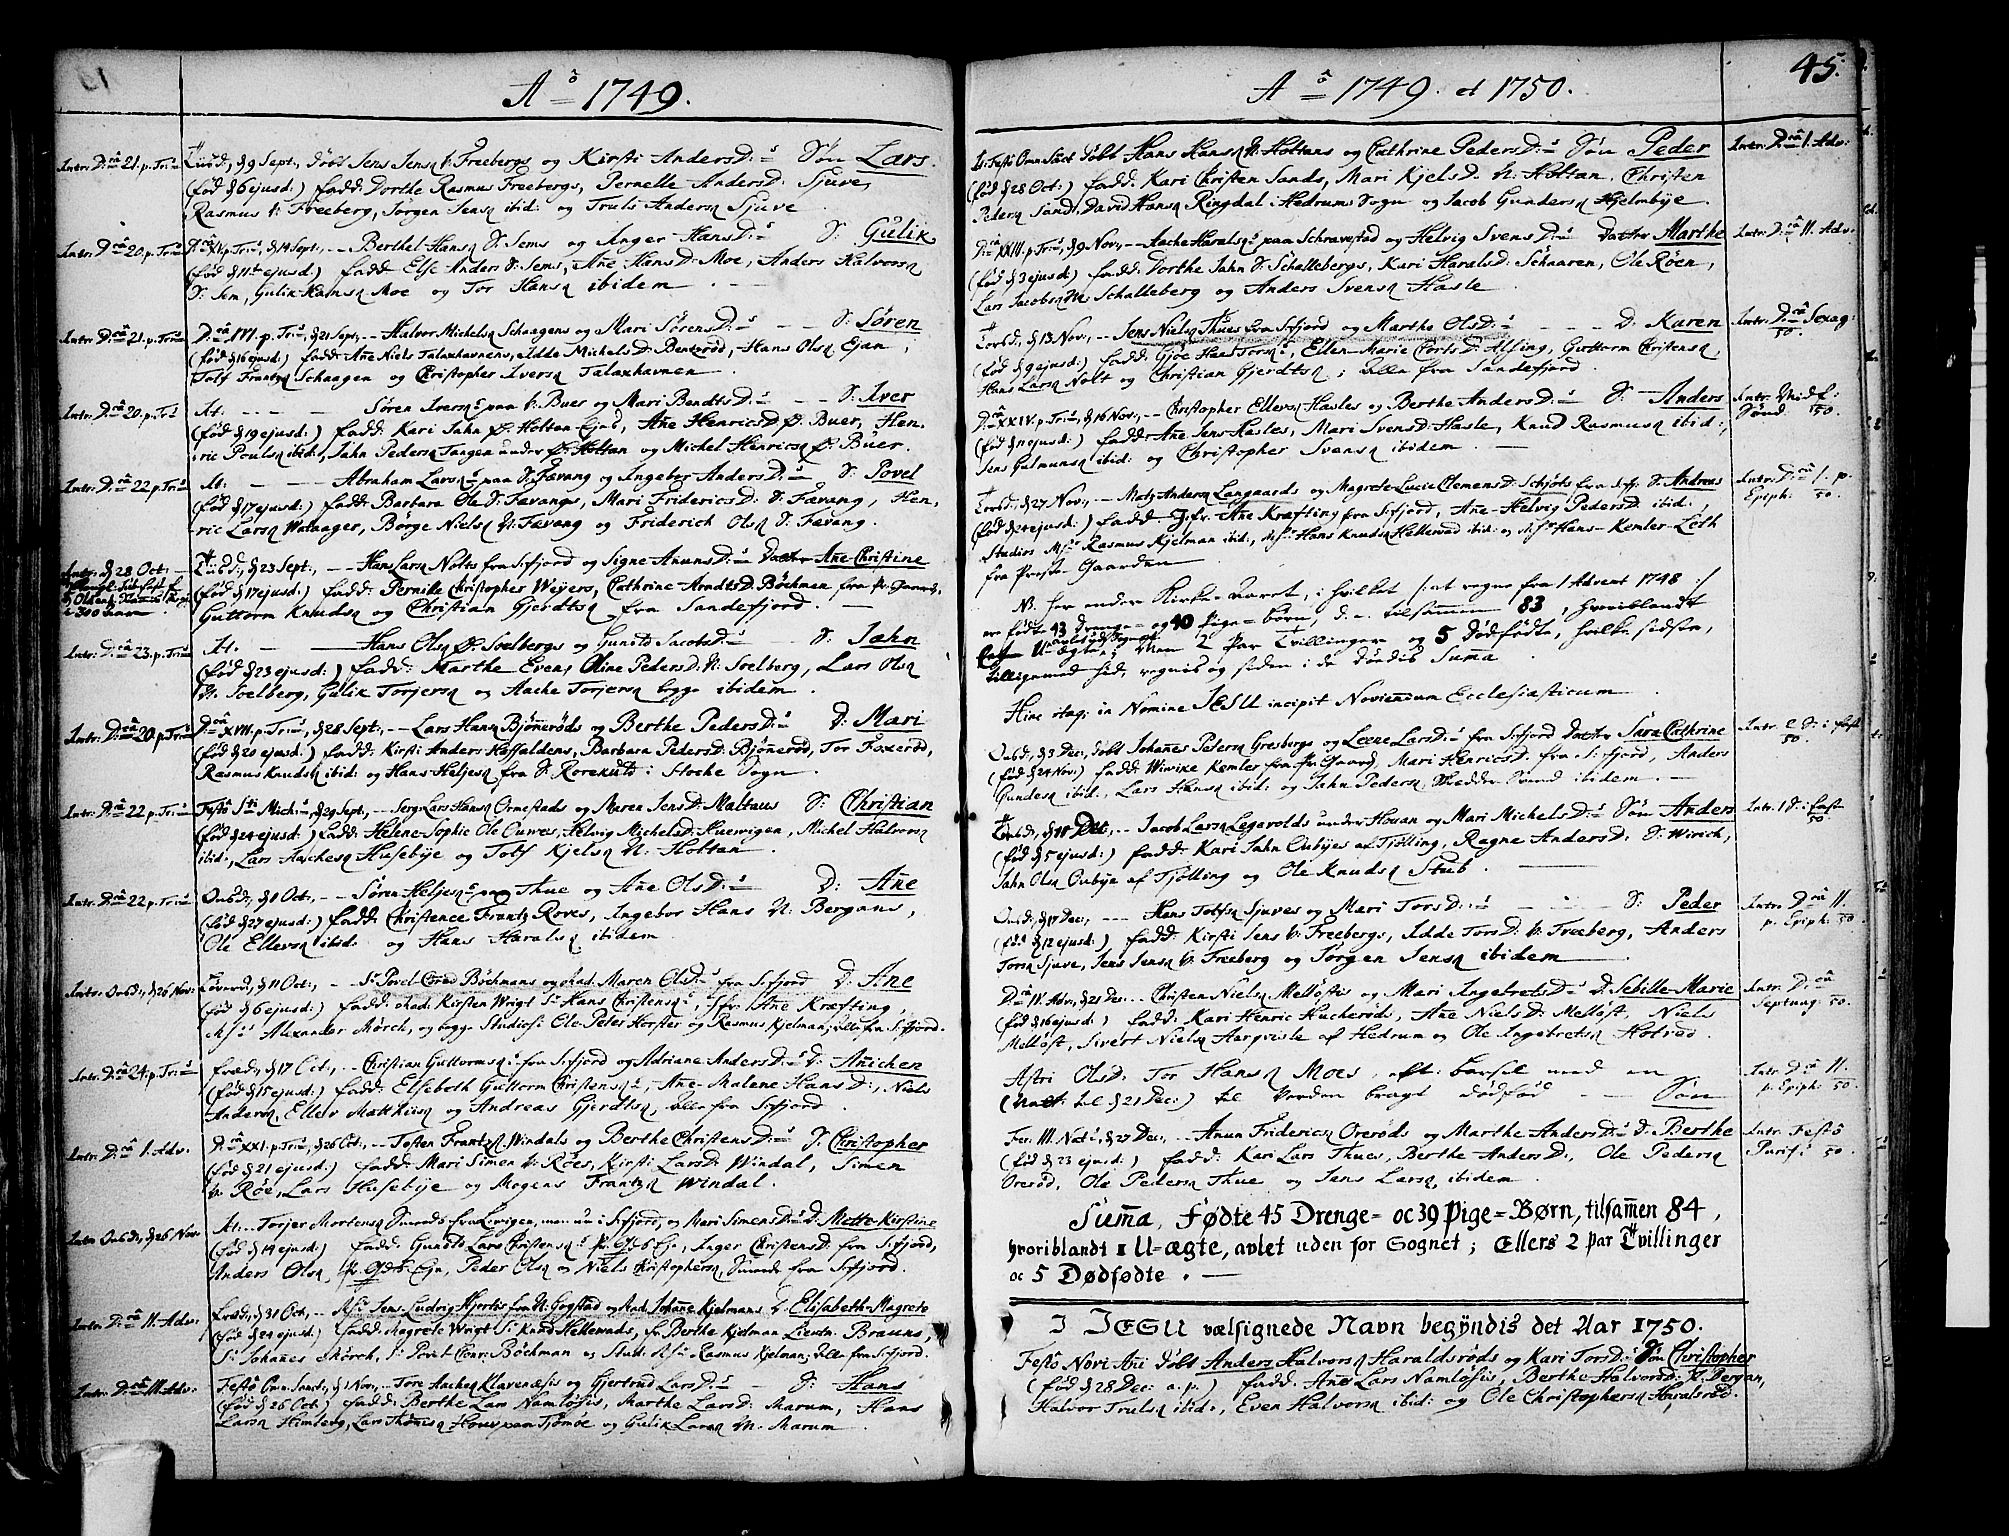 Aº 1749.
Intr: D:câ 21. p. Tr:u
Tiisd:, d 9 Sept:, døbt Jens Jensø V: Freebergs og Kirsti AndersD:s Søn Lars.
(fød d 6 ejusd:) fadd: Dorthe Rasmus Freebergs, Pernelle AndersD: Sjuve,
Rasmus V: Freeberg, Jørgen Jensø ibid: og Truls Andersø Sjuve
Intr: D:câ 20. p. Tr:u
p. Tr:, d 14 Sept:, -- Berthel Hansø S: Sems og Anger HansD: S: Gulik
(fød d 11 ejusd:) fadd: Else Anders S: Sems, Ane HansD: Moe, Anders Halvorsø
S: Sem, Gulik Hansø Moe og Tor Hansø ibidem.
Intr: D:câ 21. p. Tr:u
D:câ XVI. p. Tr:, d 21 Sept:, -- Halvor Michelsø Schaagens og Mari SørensD: -- S: Søren
(fød d 16 ejusd:) fadd: Ane Niels Talaxhavnens, Idde MichelsD: Bentzrød, Hans Olsø Ejan,
Tolf Frantzø Schaagen og Christopher Iversø Talaxhavnen.
Intr: D:câ 20. p. Tr:u
At: -- Søren Iversø paa V: Buer og Mari BendtsD: -- S: Iver
(fød d 19 ejusd:) fadd: Kari Jahn Ø: Holtan Ejns, Ane HenricsD: Ø: Buer, Hen-
ric Poulsø ibid:, Jahn Pedersø Tangen under Ø: Holtan og Michel Henricsø Ø: Buer.
Intr: D:câ 22 p. Tr:u
At: -- Abraham Larsø paa S: Fævang og Ingebor AndersD: S: Povel
(fød d 17 ejusd:) fadd: Barbara Ole S: Fævangs, Mari FridericsD: S: Fævang, Hen-
ric Larsø Watnager, Børge Nielsø N: Fævang og Friderich Olsø S: Fævang.
Intr: d 28 Oct:
i 300 aaret
Tiisd:, d 23 Sept:, -- Hans Larsø Nolts fra S:fjord og Signe AnunsD: Datter Ane-Christine
(fød d 17 ejusd:) fadd: Pernille Christopher Weyers, Cathrine ArndtsD: Bøchmen fra Pr: Gaard,
Guttorm Knudsø og Christian Gjerdtsø fra Sandefjord.
Intr: D:câ 23. p. Tr:u
At: -- Hans Olsø Ø: Soelbergs og Gunild JacobsD: S: Jahn
(fød d 23 ejusd:) fadd: Marthe Even, Oline PedersD: V: Soelberg, Lars Olsø
V: Soelberg, Gulik Torjersø og Aache Torjersø begge ibidem.
Intr: D:câ 20. p. Tr:u
D:câ XVII. p. Tr:, d 28 Sept:, -- Lars Hansø Bjønnerøds og Berthe PedersD: D: Mari
(fød d 20 ejusd:) fadd: Kirsti Anders Haffaldens, Barbara PedersD: Bjønerød, Tor Foxerød,
Rasmus Knudsø ibid: og Hans Heljesø fra S: Rorekuld i Stoche Sogn.
Intr: D:câ 22. p. Tr:u
Festô Sti Mich:, d 29 Sept:, -- Serg: Lars Hansø Ormestads og Maren JensD: Maltaus S: Christian
(fød d 24 ejusd:) fadd: Helene-Sophie Ole Ouwes, Helvig MichelsD: Huewigen, Michel Halvorsø
ibid:, Lars Aachesø Husebye og Tolf Kjelsø N: Holtan.
Intr: D:câ 22. p. Tr:u
Onsd:, d 1 Oct:, -- Søren Heljesø paa Thue og Ane OlsD: D: Ane
(fød d 27 ejusd:) fadd: Christence Frantz Roves, Ingebor Hans N: Bergans,
Ole Ellevsø ibid: og Hans Haralsø ibidem
Intr: Onsd:, d 26 Nov:
Løverd:, d 11 Oct:, -- Sr Povel Cored Bøchmans og Mad. Maren OlsD: fra S:fjord D: Ane
(fød d 6 ejusd:) fadd: Mad. Kirsten Wrigt Sr Hans Christensø, Jfr: Ane Kræfting,
Mr Alexander Mørch, og begge Studiosi Ole Peter Horster og Rasmus Kjelman; alle fra S:fjord.
Intr: D:câ 24. p. Tr:u
Fred:, d 17 Oct:, -- Christian Guttormsø fra S:fjord og Adriane AndersD: D: Anichen
(fød d 15 ejusd:) fadd: Elsebeth Guttorm Christensø, Ane-Malene HansD:, Niels
Andersø, Ellev Matthisø og Andreas Gjerdtsø, alle fra S:fjord.
Intr: D:câ 1. Adv:
D:câ XXI. p. Tr:, d 26 Oct:, -- Tosten Frantzø Windals og Berthe ChristensD: S: Christopher
(fød d 21 ejusd:) fadd: Mari Simen V: Røes, Kirsti LarsD: Windal, Simen
V: Røe, Lars Husebye og Mogens Frantzø Windal.
Intr: Onsd:, d 26 Nov:
At: -- Torjer Mortensø Smeds fra Lervigen, men nu i S:fjord, og Mari SimensD: D: Mette-Kirstine
(fød d 14 ejusd:) fadd: Gunild Lars Christensø Pr: Gds Ejn, Inger ChristensD: fra S:fjord,
Anders Olsø Pr: Gds Ejn, Peder Olsø og Niels Christophersø, Smede fra S:fjord.
Intr: D:câ 11. Adv:
Fred:, d 31 Oct:, -- Jens Ludvig Hjorts fra N: Gogstad og Mad. Johanne Kjelmans D. Elisabeth-Magrete
(fød d 24 ejusd:) fadd: Magrete Wrigt Sr Knud Hellewads, Berthe Kjelman Lieutn: Brauns,
Sr Johannes Mørch, Sr Povel Conr: Bøchman og Stud: Rasmus Kjelman; alle fra S:fjord.
Intr: D:câ 11. Adv:
Festô Omn: Sanct:, d 1 Nov:, -- Tore Aachesø Klavenæsis og Gjertrud LarsD: S: Hans
(fød d 26 Oct:) fadd: Berthe Lars Namløsis, Marthe LarsD: Marum, Hans
Larsø Himberg, Lars Thomesø Hover paa Tjømøe og Gulik Larsø N: Marum.
Aº 1749. et 1750.
45.
Intr: D:câ 1. Adv:
Festô Omn: Sanct døbt Hans Hansø N: Holtans og Cathrine PedersD: Søn Peder
(fød d 28 Oct:) fadd: Kari Christen Sands, Mari KjelsD. N: Holtan, Christen
Pedersø Sand, David Hansø Ringdal i Hedrums Sogn og Jacob Gundersø Hjelmbye.
Intr: D:câ 11. Adv:
D:câ XXIII. p. Tr:, d 9 Nov:, -- Aache Haralsø paa Schravestad og Helvig SvensD: Datter Marthe
(fød d 3 ejusd:) fadd: Dorthe Jahn S: Schallebergs, Kari HaralsD: Schaaren, Ole Røen,
Lars Jacobsø N: Schalleberg og Anders Svensø Hasle.
Intr: D:câ Sexag: 50.
Torsd:, d 13 Nov:, -- Jens Nielsø Thues fra S:fjord og Marthe OlsD: -- D: Karen
(fød d 9 ejusd:) fadd: Gjøe Hans Torsø, Ellen-Marie CortsD: Alsing, Guttorm Christensø,
Hans Larsø Nolt og Christian Gjerdtsø; alle fra Sandefjord.
Intr: Midf: Sønd: 50.
D:câ XXIV. p. Tr:, d 16 Nov:, -- Christopher Ellevsø Hasles og Berthe AndersD: S: Anders
(fød d 11 ejusd:) fadd: Ane Jens Hasles, Mari SvensD: Hasle, Knud Rasmusø ibid:,
Jens Gulmunsø ibid: og Christopher Svensø ibidem.
Intr: D:câ 1. p. Epiph: 50.
Torsd:, d 27 Nov:, -- Matz Andersø Langaards og Magrete Lucie ClemensD: Schjøts fra S:fj: S: Andreas
(fød d 24 ejusd:) fadd: Jfr: Ane Kræfting fra S:fjord, Ane-Helvig PedersD: ibid:
Studios Mr Rasmus Kjelman ibid:, Mr Hans Knudsø Hellewad ibid: og Mr Hans-Kemler Leth
fra Præste-Gaarden
NB. her ender Kirke-aaret, i hvilket /: at regne fra 1 Advent 1748 :/
ere fødte 43 Drenge- og 40 Pige-børn, d. e. tilsammen 83, hvoriblandt
U-ægte; Men 2 Par Tvillinger og 5 Dødfødte, hvilke sidste,
tilligemed hid, regnis og siden i de dødis Summa.
Hinc itaq: in Nomine JESU incipit Noviennum Ecclesiasticum
Intr: 2 D: i Faste 50.
Onsd:, d 3 Dec:, døbt Johannes Petersø Gresbergs og Leene LarsD: fra S:fjord Datter Sara Cathrine
(fød d 24 Nov:) fadd: Wiwike Kemler fra Pr: Gaard, Mari HenricsD: fra S:fjord, Anders
Gundesø ibid:, Lars Hansø ibid: og Jahn Pedersø, Smedde-Svend ibidem.
Intr: 1 D: i Faste 50.
Torsd:, d 11 Dec:, -- Jacob Larsø Legavolds under Houan og Mari MichelsD: Søn Anders
(fød d 5 ejusd:) fadd: Kari Jahn Oubyes af Tjølling, Ragne AndersD: S: Wirich,
Jahn Olsø Oubye af Tjølling og Ole Knudsø Stub.
Intr: D:câ 11. p. Epiph: 50.
Onsd:, d 17 Dec:, -- Hans Tolfsø Sjuves og Mari TorsD: -- S: Peder
(fød d 12 ejusd:) fadd: Kirsti Jens V: Freebergs, Idde TorsD: V: Fræberg, Anders
Torsø Sjuve, Jens Jensø V: Freeberg og Jørgen Jensø ibidem
Intr: D:câ Septuag: 50.
D:câ IV. Adv:, d 21 Dec:, -- Christen Nielsø Melløstis og Mari IngebretsD: D: Sebille-Marie
(fød d 16 ejusd:) fadd: Kari Henric Hucherøds, Ane NielsD: Melløst, Niels
Melløst, Sivert Nielsø Haspisle af Hedrum og Ole Ingebretsø Hotved.
Intr: D:câ 11. p. Epiph: 50.
Astri OlsD: Tor Hansø Moes, eft: barsel med en
(Natt: til d 21 Dec:) til Verden bragt dødfød -- Søn
Intr: Festô Purif: 50.
Fer: III. Nat:, d 27 Dec:, -- Anun Fridericsø Orerøds og Marthe AndersD: D: Berthe
(fød d 23 ejusd:) fadd: Kari Lars Thues, Berthe AndersD:, Ole Pedersø
Orerød, Ole Pedersø Thue og Jens Larsø ibidem.
Summa, Fødte 45 Drenge- oc 39 Pige-Børn, tilsammen 84,
hvoriblandt 1 U-ægte, avlet uden for Sognet; Ellers 2 Par Tvillinger
oc 5 Dødfødte.
I JESU velsignede Navn begyndis det Aar 1750.
Festô Novi Ani døbt Anders Halvorsø Haraldsrøds og Kari TorsD: Søn Christopher
(fød d 28 Dec: a. p.) fadd: Ane Lars Namløsis, Berthe HalvorsD: N. Bergan,
Halvor Trulsø ibid:, Even Halvorsø ibid: og Ole Christophersø Haralsrød.